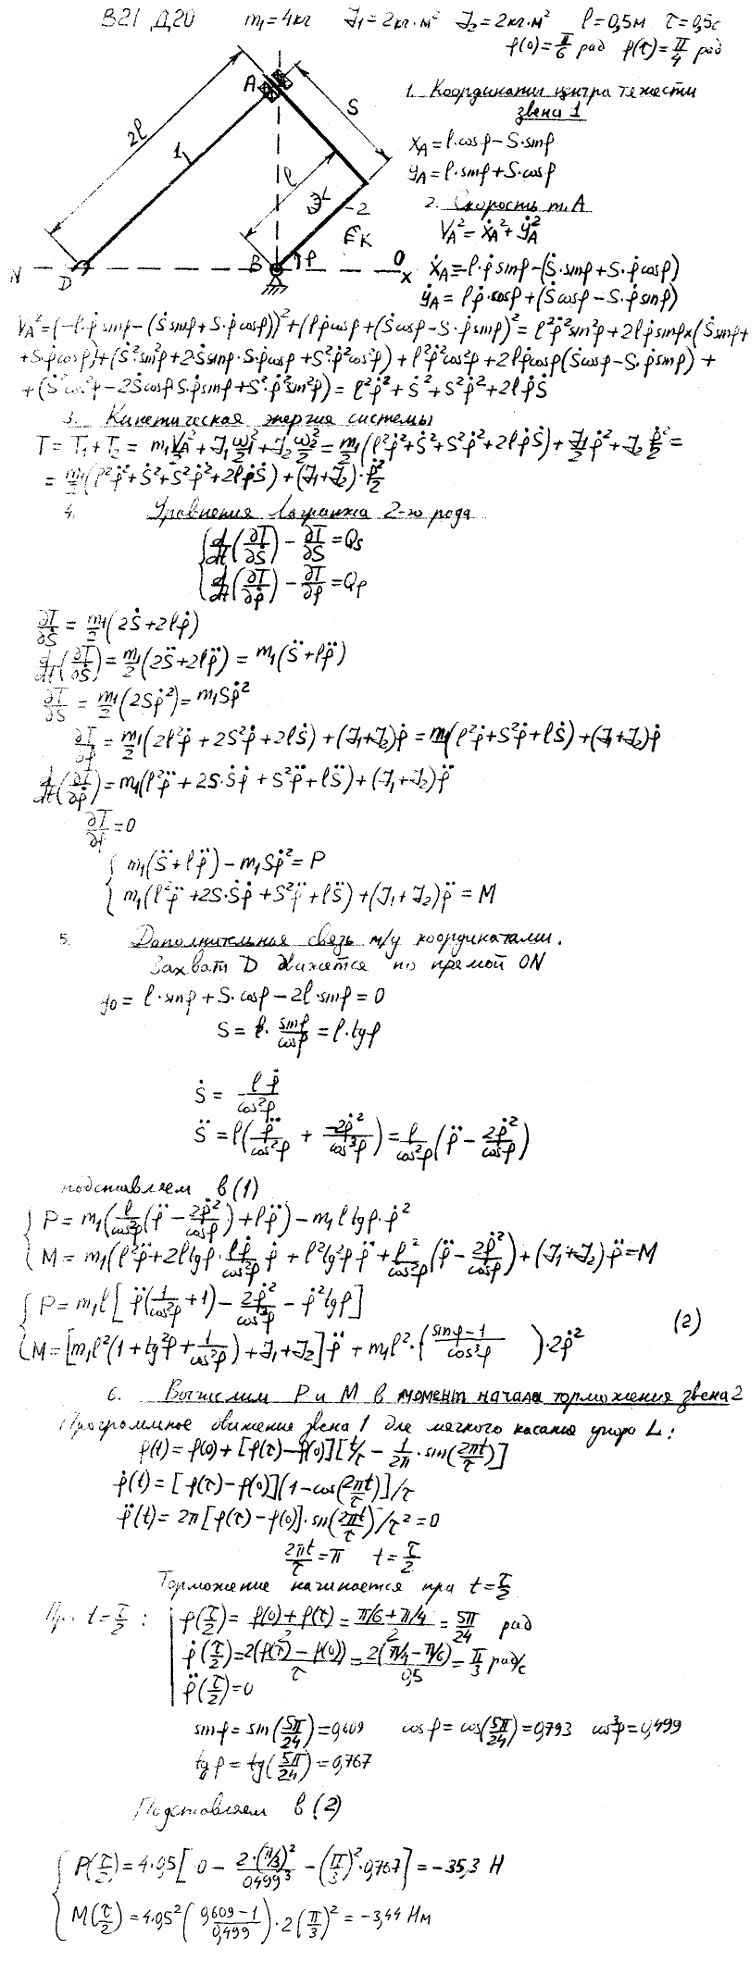 В21 Д20 m₁=4кг J₁=2кг·м² J₂=2кг·м² l=0,5м τ=0,5с
φ(0)=π/6 рад φ(τ)=π/4 рад
A S 2l 1 l 2 K
N D B φ O x
1. Координати центра тяжести
звена 1
x_A=l·cosφ−S·sinφ
y_A=l·sinφ+S·cosφ
2. Скорость т.А
V_A²=ẋ_A²+ẏ_A²
ẋ_A=−l·φ̇ sinφ−(Ṡ·sinφ+S·φ̇ cosφ)
ẏ_A=lφ̇·cosφ+(Ṡcosφ−S·φ̇ sinφ)
V_A²=(−l·φ̇ sinφ−(Ṡsinφ+S·φ̇cosφ))²+(lφ̇cosφ+(Ṡcosφ−S·φ̇ sinφ)²=l²φ̇²sin²φ+2lφ̇ sinφ×(Ṡsinφ+
+Sφ̇cosφ)+(Ṡ²sin²φ+2Ṡsinφ·Sφ̇cosφ+S²φ̇²cos²φ)+l²φ̇²cos²φ+2lφ̇cosφ(Ṡcosφ−S·φ̇sinφ)+
+(Ṡ²cos²φ−2ṠcosφSφ̇sinφ+S²φ̇²sin²φ)=l²φ̇²+Ṡ²+S²φ̇²+2lφ̇Ṡ
3. Кинетическая энергия системы
T=T₁+T₂=m₁V_A²/2+J₁ω₁²/2+J₂ω₂²/2=m₁/2(l²φ̇²+Ṡ²+S²φ̇²+2lφ̇Ṡ)+J₁/2φ̇²+J₂φ̇²/2=
=m₁/2(l²φ̇²+Ṡ²+S²φ̇²+2lφ̇Ṡ)+(J₁+J₂)·φ̇²/2
4. Уравнения Лагранжа 2-го рода
d/dt(∂T/∂Ṡ)−∂T/∂S=Q_S
d/dt(∂T/∂φ̇)−∂T/∂φ=Q_φ
∂T/∂Ṡ=m₁/2(2Ṡ+2lφ̇)
d/dt(∂T/∂Ṡ)=m₁/2(2S̈+2lφ̈)=m₁(S̈+lφ̈)
∂T/∂S=m₁/2(2Sφ̇²)=m₁Sφ̇²
∂T/∂φ̇=m₁/2(2l²φ̇+2S²φ̇+2lṠ)+(J₁+J₂)φ̇=m₁(l²φ̇+S²φ̇+lṠ)+(J₁+J₂)φ̇
d/dt(∂T/∂φ̇)=m₁(l²φ̈+2S·Ṡφ̇+S²φ̈+lS̈)+(J₁+J₂)φ̈
∂T/∂φ=0
m₁(S̈+lφ̈)−m₁Sφ̇²=P
m₁(l²φ̈+2S·Ṡφ̇+S²φ̈+lS̈)+(J₁+J₂)φ̈=M
5. Дополнительная связь м/у координатами.
Захват D движется по прямой ON
y_D=l·sinφ+S·cosφ−2l·sinφ=0
S=l·sinφ/cosφ=l·tgφ
Ṡ=lφ̇/cos²φ
S̈=l(φ̈/cos²φ+−2φ̇²/cos³φ)=l/cos²φ(φ̈−2φ̇²/cosφ)
подставляем в (1)
P=m₁(l/cos²φ(φ̈−2φ̇²/cosφ)+lφ̈)−m₁l tgφ·φ̇²
M=m₁(l²φ̈+2l tgφ·lφ̇/cos²φ φ̇+l²tg²φ φ̈+l²/cos²φ(φ̈−2φ̇²/cosφ)+(J₁+J₂)φ̈=M
P=m₁l[φ̈(1/cos²φ+1)−2φ̇²/cos³φ−φ̇²tgφ]
M=[m₁l²(1+tg²φ+1/cos²φ)+J₁+J₂]φ̈+m₁l²·(sinφ−1/cos³φ)·2φ̇² (2)
6. Вычислим P и M в момент начала торможения звена 2
Программное движение звена 1 для мягкого касания упора L:
φ(t)=φ(0)+[φ(τ)−φ(0)][t/τ−1/2π·sin(2πt/τ)]
φ̇(t)=[φ(τ)−φ(0)](1−cos(2πt/τ)]/τ
φ̈(t)=2π[φ(τ)−φ(0)]·sin(2πt/τ)/τ²=0
2πt/τ=π t=τ/2
Торможение начинается при t=τ/2
При t=τ/2: φ(τ/2)=φ(0)+φ(τ)/2=π/6+π/4/2=5π/24 рад
φ̇(τ/2)=2(φ(τ)−φ(0))/τ=2(π/4−π/6)/0,5=π/3 рад/с
φ̈(τ/2)=0
sinφ=sin(5π/24)=0,609 cosφ=cos(5π/24)=0,793 cos³φ=0,499
tgφ=tg(5π/24)=0,767
Подставляем в (2)
P(τ/2)=4·0,5[0−2·(π/3)²/0,499³−(π/3)²·0,767]=−35,3 Н
M(τ/2)=4·0,5²(0,609−1/0,499)·2(π/3)²=−3,44 Нм